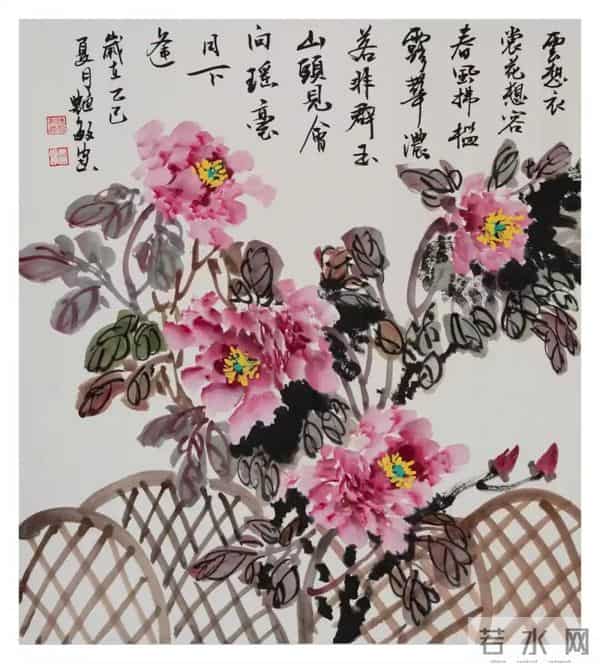 雲想衣
裳花想容
春風拂檻
露華濃
若非群玉
山頭見會
向瑤臺
月下
逢
歲在乙巳
夏月敏寫
若水网